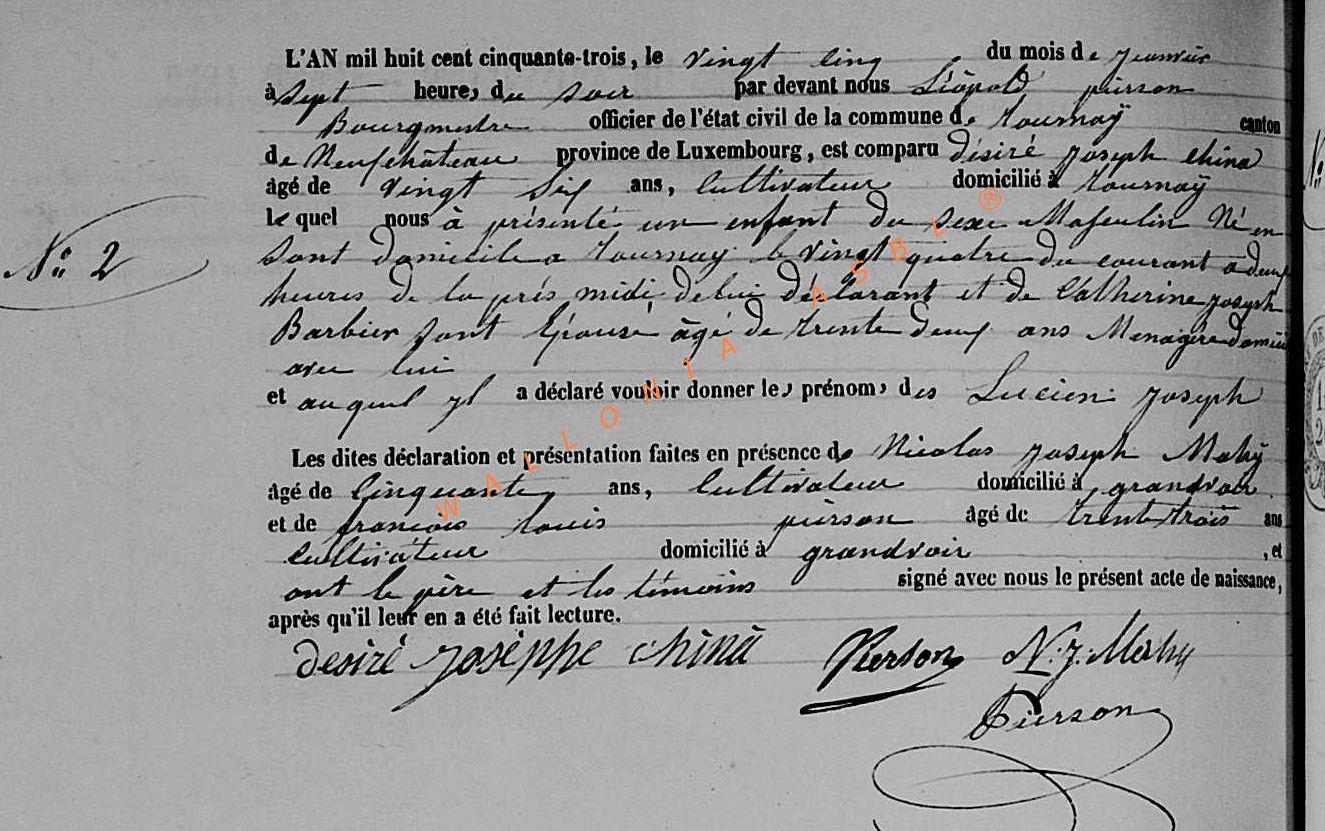 L'AN mil huit cent cinquante-trois, le vingt cinq du mois de janvier
à sept heures du soir par devant nous Léôpold pierson
Bourgmestre officier de l'état civil de la commune de tournaÿ canton
de Neufchâteau province de Luxembourg, est comparu désiré joseph china
âgé de vingt six ans, Cultivateur domicilié à tournaÿ
lequel nous à présenté un enfant du sexe Masculin Né en
sont domicile a tournay le vingt quatre du courant a deux
heures de la prés midi de lui déclarant et de Catherine joseph
Barbier sont Epouse âgé de trente deux ans Menagere
avec lui
et auquel yl a déclaré vouloir donner les prénoms des Lucien joseph
Les dites déclaration et présentation faites en présence de Nicolas joseph Mahÿ
âgé de Cinquante ans, Cultivateur domicilié à grandvoir
et de françois louis pierson âgé de trente trois ans
Cultivateur domicilié à grandvoir , et
ont le père et les témoins signé avec nous le présent acte de naissance,
après qu'il leur en a été fait lecture.
N° 2
desiré joséphe china Pierson N. j. Mahy
Pierson
WALLONIA ASBL ®